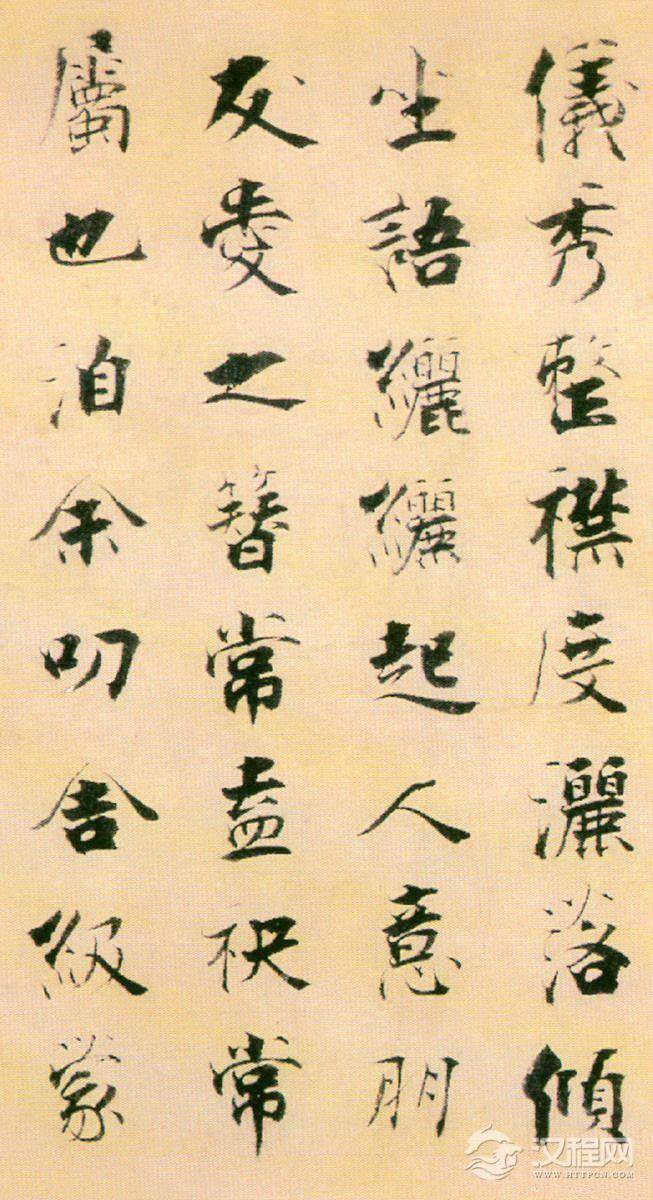 儀秀整襟度灑落傾
坐語纚纚起人意朋
友愛之簪常盍袂常
屬也洎余叨舍級蒙
汉程网
WWW.HTTPCN.COM